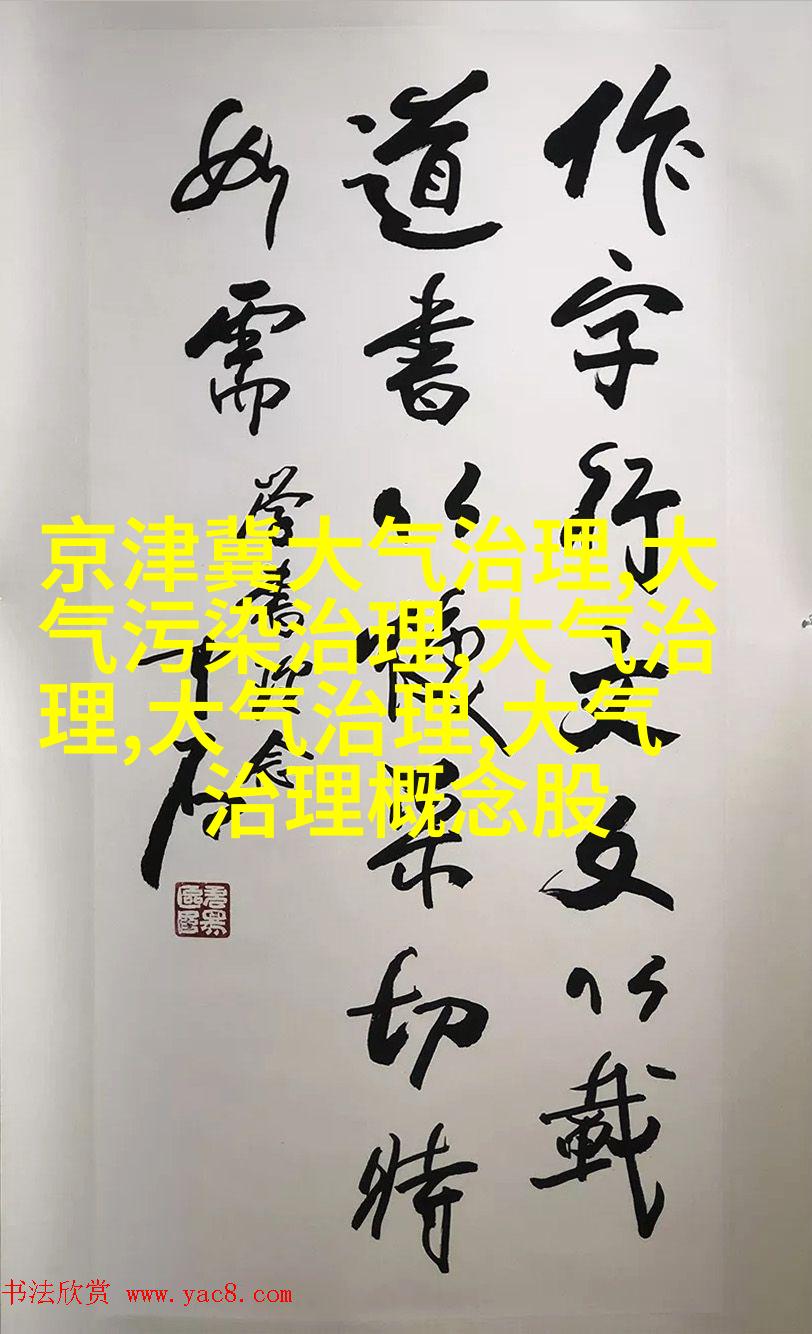 作字行文文以載
道書以焕采切時
如需
京津冀大气治理,大
气污染治理,大气治
理,大气治理,大气
治理概念股
书法欣赏 www.yac8.com